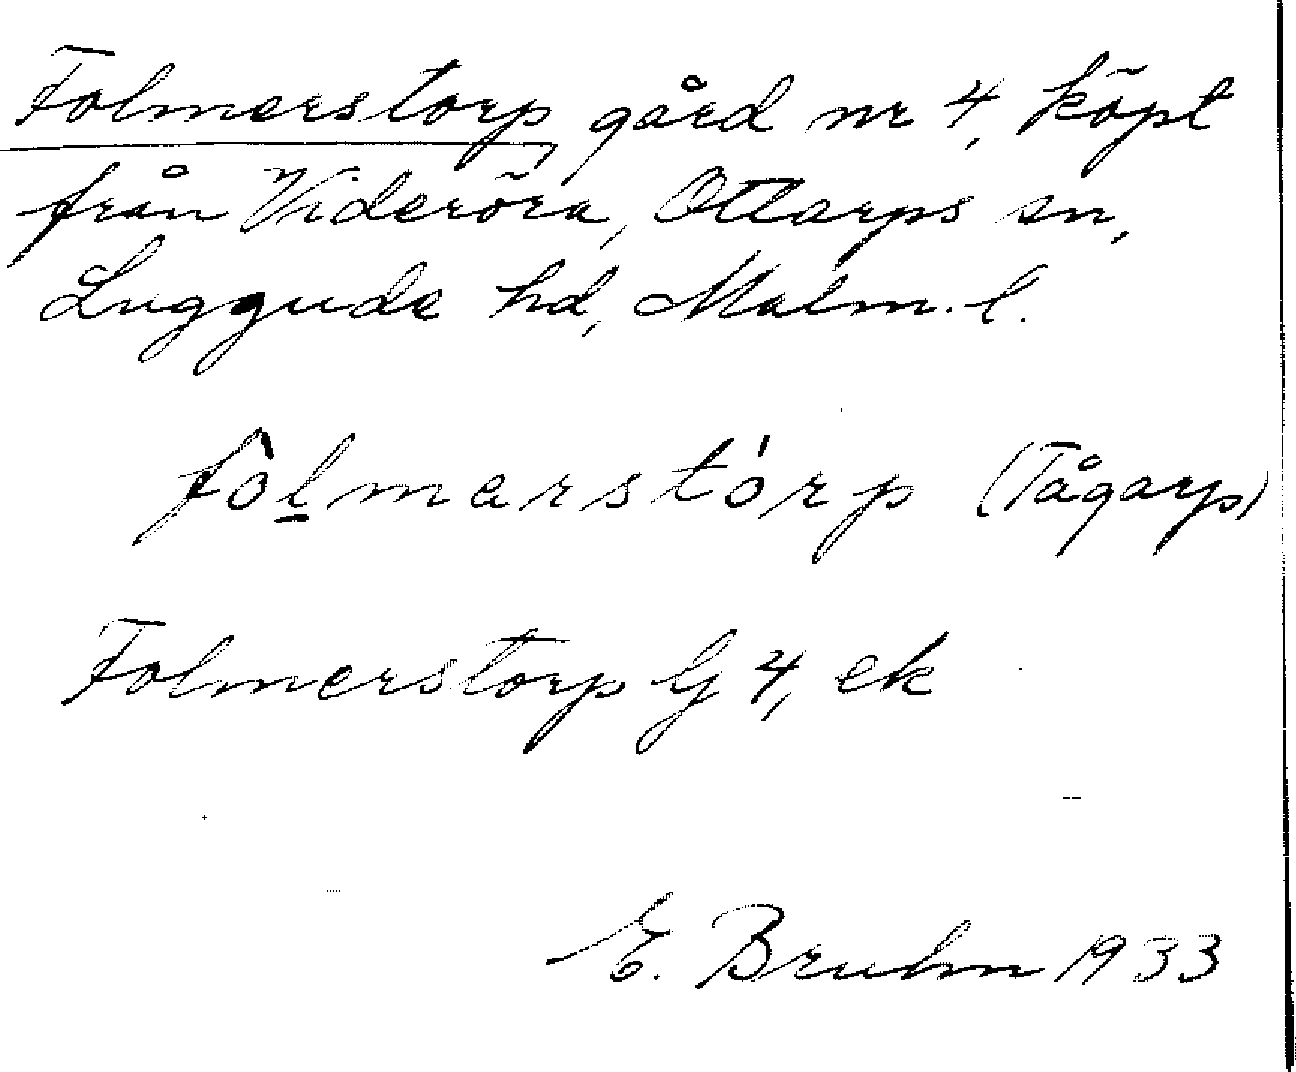 Folmerstorp, gård nr 4, köpt
från Videröra, Ottarps sn,
Luggude hd, Malm. l.
fòl̲marstórp (Tågarp)
Folmerstorp G 4, ek
E. Bruhn 1933